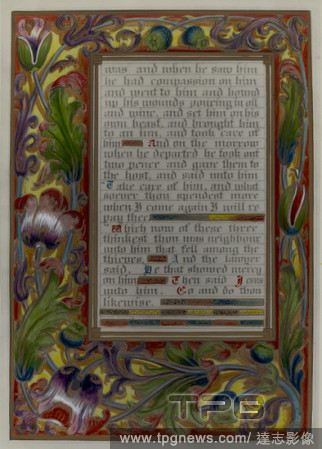 was and when he saw him
he had compassion on him
and went to him and bound
up his wounds pouring in oil
and wine, and set him on his
own beast, and brought him
to an inn, and took care of
him And on the morrow
when he departed he took out
two pence and gave them to
the host, and said unto him
Take care of him, and what
soever thou spendest more
when I come again I will re
pay thee
Which now of these three
thinkest thou was neighbour
unto him that fell among the
thieves, And the lawyer
said, He that showed mercy
on him Then said Jesus
unto him, Go and do thou
likewise.
TPG
www.tpgnews.com/ 達志影像